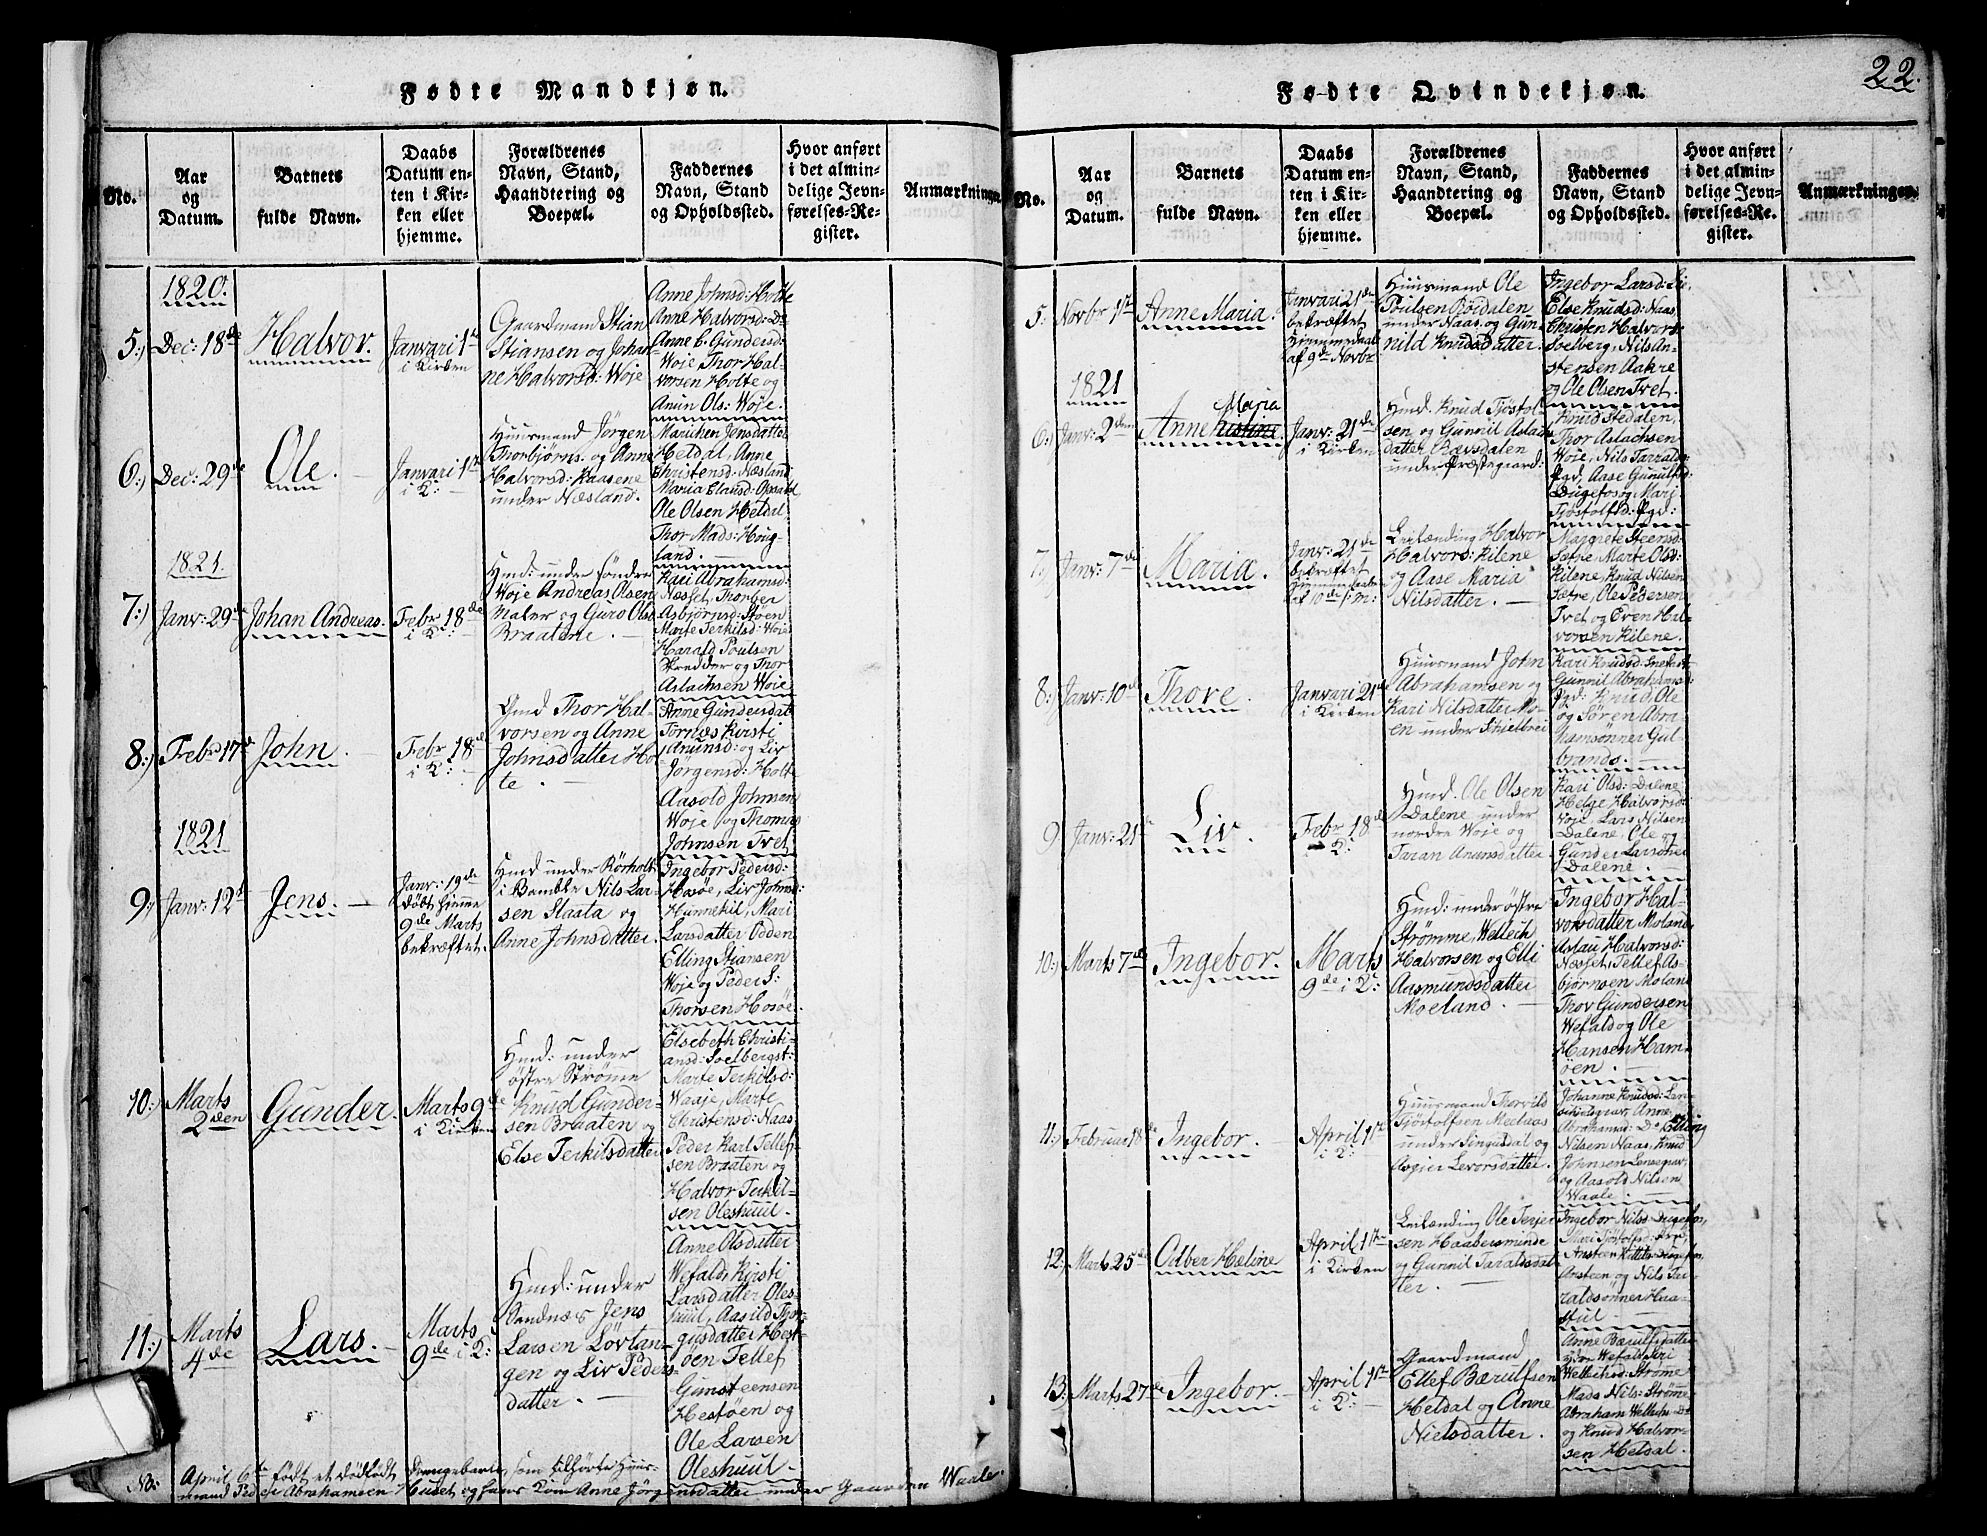 22.
Fødte Mandkjøn.
No.
Aar
og
Datum.
Barnets
fulde Navn.
Daabs
Datum en-
ten i Kir-
ken eller
hjemme.
Forældrenes
Navn, Stand,
Haandtering og
Boepæl.
Faddernes
Navn, Stand
og Opholdssted.
Hvor anført
i det almin-
delige Jevn-
førelses-Re-
gister.
Anmærkninger.
1820.
5:)
Dec: 18de
Halvor.
Janvari 1ste
i Kirken
Gaardmand Stian
Stiansen og Johan-
ne Halvorsd: Woje
Anne Johnsd: Holte
Anne Halvorsd: Do
Anne C. Gundersd:
Woje Thor Hal-
vorsen Holte og
Anun Ols: Woje.
6:)
Dec: 29de
Ole.
Janvari 1ste
i K:
Huusmand Jörgen
Thorbjørns: og Anne
Halvorsd: Kaasene
under Næsland.
Marichen Jensdatter
Heldal, Anne
Christensd: Næsland
Maria Elansd: Opsald
Ole Olsen Heldal
Thor Mads: Houg-
land.
1821.
7:)
Janv: 29de
Johan Andreas.
Febr 18de
i K:
Hmd: under söndre
Woje Andreas Olsen
Maler og Guro Olsd
Braatene.
Kari Abrahamsd:
Næsset, Thorber
Asbjørnsd: Støen
Marte Terkilsd: Woje
Harald Poulsen
Skredder og Thor
Aslachsen Woje
8:)
Febr 17de
John.
Febr 18de
i K:
Gmd Thor Hal-
vorsen og Anne
Johnsdatter Hol-
te.
Anne Gundersdat
Tornæs Kirsti
Anunsd: og Liv
Jørgensd: Holte
Aasold Johnsen
Woje og Thomas
Johnsen Tvet
1821
9:)
Janv: 12te
Jens.
Janv: 19de
døbt hjemme
9de Marts
bekræftet.
Hmd under Rörholt
i Bamble Nils Lar-
sen Slaata og
Anne Johnsdatter.
Ingebor Pedersd:
Hosøe, Liv Johnsd:
Hunnekil, Mari
Larsdatter Odden
Elling Stiansen
Woje og Peder S:
Thorsen Hosöe.
10:)
Marts
2den
Gunder.
Marts 9de
i Kirken
Hmd: under
östre Strömme
Knud Gunder-
sen Braaten og
Else Terkilsdatter
Elsebeth Christi-
ansd: Soelbergst:
Marte Terkilsd:
Waaje, Marte
Christensd: Naas
Peder Karl Tellef-
sen Braaten og
Halvor Terkel-
sen Oleshuul.
11:)
Marts
4de
Lars.
Marts
9de i K:
Hmd: under
Sandnæs Jens
Larsen Lövtan-
gen og Liv Peders-
datter.
Anne Olsdatter
Wefald, Kirsti
Larsdatter Oles-
huul, Aasild Tjør-
gusdatter Hest-
öen Tellef
Gunsteensen
Hestöen og
Ole Larsen
Oleshuul.
NB: April 6te födt et dödfödt Drengebarn, som tilhörte Huus-
mand Peder Abrahamsen Huset og hans Kone Anne Jörgensdatter under Gaarden Waale.
Fødte Qvindekjøn.
No.
Aar
og
Datum.
Barnets
fulde Navn.
Daabs
Datum en-
ten i Kir-
ken eller
hjemme.
Forældrenes
Navn, Stand,
Haandtering og
Boepæl.
Faddernes
Navn, Stand
og Opholdssted.
Hvor anført
i det almin-
delige Jevn-
førelses-Re-
gister.
Anmærkninger.
5:
Novbr 1ste
Anne Maria.
Janvari 21de
bekræftet
hjemmedaab
af 9de Novbr
Huusmand Ole
Poulsen Böedalen
under Naas og Gun-
nild Knudsdatter.
Ingebor Larsd: Lie,
Else Knudsd: Naas,
Christen Halvors
Soelberg, Nils An-
stensen Aakre
og Ole Olsen Tvet.
1821
6:)
Janv: 2den
Anne Maria
Janv: 21de
i Kirken
Hmd: Knud Tjöstol-
sen, og Gunnil Aslachs-
datter Bævsdalen
under Præstegaard:
Knud Stedalen,
Thor Aslachsen
Woje, Nils Tarralds:
Pgd, Aase Gunulfsd:
Dugefos og Mari
Tjöstolfsd: Pgd:
7:)
Janv: 7de
Maria.
Janv: 21de
bekræftet
Hjemmedaaben
af 10de s: m:
Leilænding Halvor
Halvors: Kilene
og Aase Maria
Nilsdatter.
Margrete Steensd:
Sætre, Marte Olsd:
Kilene, Knud Nilsen
Sætre, Ole Pedersen
Tvet og Even Hal-
vorsen Kilene.
8:)
Janv: 10de
Thore.
Janvari 21de
i Kirken
Huusmand John
Abrahamsen og
Kari Nilsdatter Mo-
en under Skielbrei
Kari Knudsd:
Gunnil Abrahamsd:
Pgd: Knud, Ole
og Sören Abra-
hamsönner Gul-
brands.
9
Janv: 21de
Liv.
Febr 18de
i K:
Hmd. Ole Olsen
Dalene under
nordre Woje og
Taran Anunsdatter.
Kari Olsd: Dalene
Helge Halvorsd:
Woje Lars Nilsen
Dalene, Ole og
Gunder Larsöner
Dalene.
10:)
Marts 7de
Ingebor.
Marts
9de i K:
Hmd: under östre
Strömme, Wellech
Halvorsen og Elli
Aasmundsdatter
Moeland.
Ingebor Hal-
vorsdatter Moland
Aslau Halvorsd:
Næsset, Tellef As-
björnsen Moland
Thor Gundersen
Wefald og Ole
Hansen Ham-
öen.
11:)
Februar 18de
Ingebor.
April 1ste
i K:
Huusmand Thorvild
Tjöstolfsen Meelaas
under Singusdal og
Asgier Levorsdatter.
Johanne Knudsd: Len-
segrav, Anne
Abrahamsd: Do Elling
Nilsen Naas, Knud
Johnsen Lensegrav,
og Aasold Nilsen
Waale.
12:)
Marts 25de
Odber Heline
April 1ste
i Kirken
Leilænding Ole Terjer-
sen Haabersminde
og Gunnil Taraldsdat-
ter.
Ingebor Nilsd Dugefos,
Mari Tjöstolfsd:
Ansteen Kittils: Dugefos,
Ansteen og Nils Tar-
raldsönner Haa-
stul
13:)
Marts 27de
Ingebor.
April 1ste
i K:
Gaardmand
Ellef Bærulfsen
Heldal og Anne
Nielsdatter.
Anne Bærulfsdatter
Wefald Siri
Wellechsd: Strömme
Mads Nils: Strömme
Abraham Wellechs: Do
og Knud Halvor-
sen Heldal.